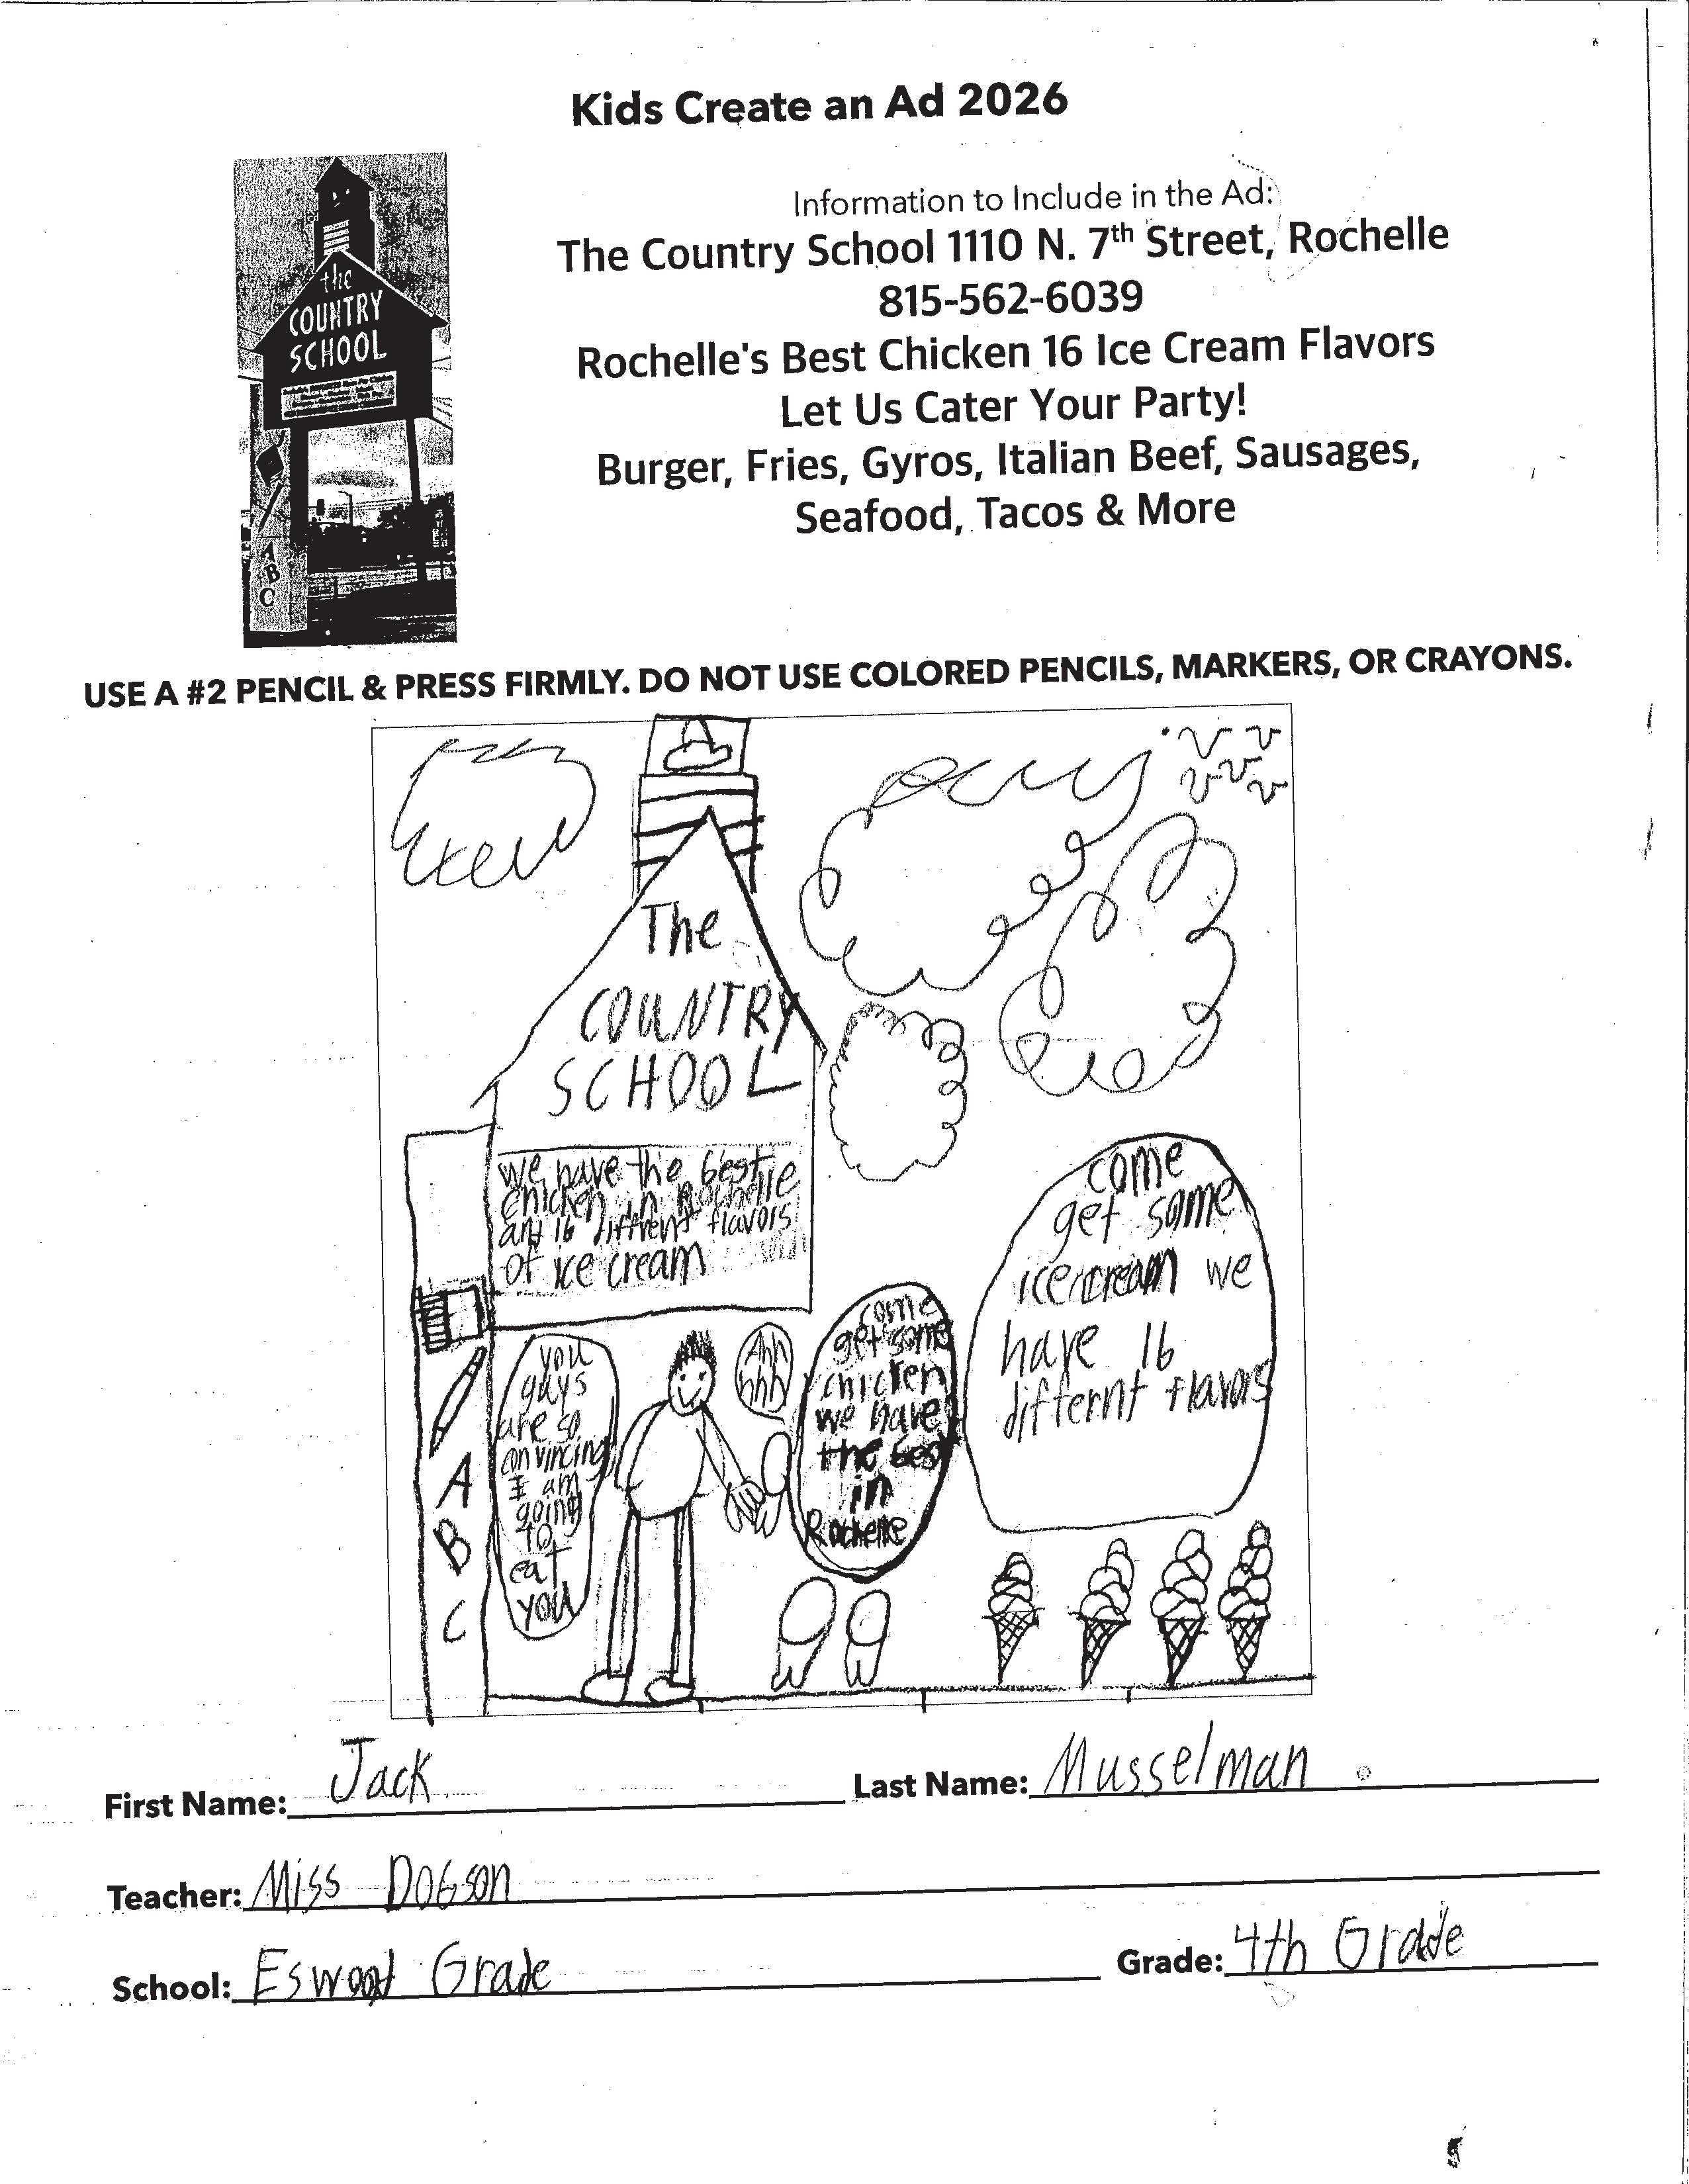 Kids Create an Ad 2026
Information to Include in the Ad:
The Country School 1110 N. 7th Street, Rochelle
815-562-6039
Rochelle's Best Chicken 16 Ice Cream Flavors
Let Us Cater Your Party!
Burger, Fries, Gyros, Italian Beef, Sausages,
Seafood, Tacos & More
the
COUNTRY
SCHOOL
A
B
C
USE A #2 PENCIL & PRESS FIRMLY. DO NOT USE COLORED PENCILS, MARKERS, OR CRAYONS.
The
COUNTRY
SCHOOL
we have the best
chicken in Rochelle
and 16 diffrent flavors
of ice cream
A
B
C
you
guys
are so
convincing
I am
going
to
eat
you
Ahh
hhh
come
get some
chicken
we have
the best
in
Rochelle
come
get some
ice cream we
have 16
differnt flavors
First Name: Jack
Last Name: Musselman
Teacher: Miss Dobson
School: Eswood Grade
Grade: 4th Grade